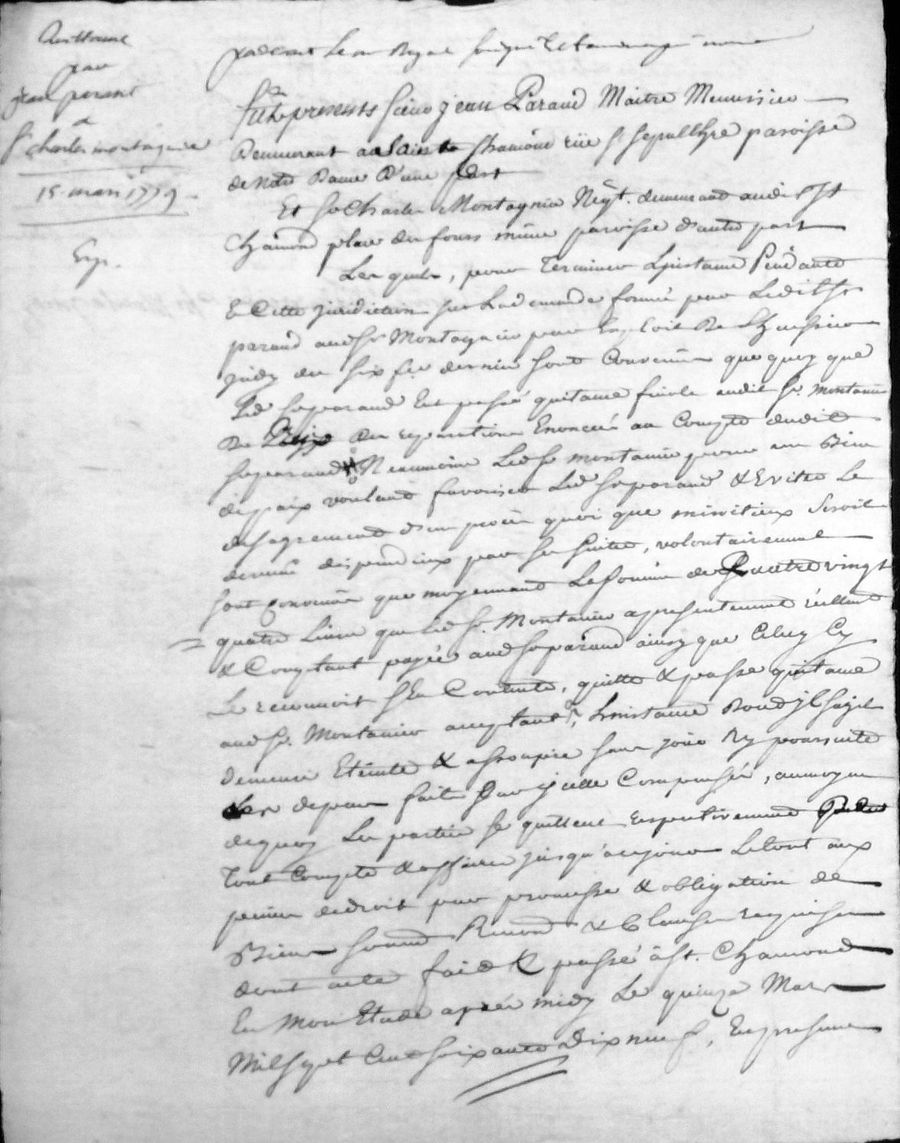 Quittance
par
jean perent
à
Sr charles montagnier
15. mars 1779.
Exp.
pardevant Le no. Royal soussigné et
fut presents Sieur jean Paraud Maitre Menuisier
Demeurant à Saint Chamond rüe St sepulchre paroisse
de notre Dame d'une part
Et Sr Charles Montagnier Négt. demeurant audit St
Chamond place du fours même paroisse d'autre part
Lesquels, pour Terminer L'instance Pendante
En Cette juridiction sur La demande formée par Ledit Sr
paraud audt Sr Montagnier par Exploit De L'huissier
du six fer. dernier sont Convenus que quoy que
Led. Sr paraud Eut passé quitance finale audit Sr. Montanier
De des reparations Enoncées au Compte dudit
Sr paraud Neanmoins Led Sr montanier pour un Bien
de paix voulant favoriser Led Sr paraud & Eviter Le
desagrement d'un procès quoi que minutieux Seroit
devenu dispendieux par sa suitte, volontairement
sont convenus que moyennant La somme de Quatre vingt
quatre Livres que Led Sr. Montanier a presentement réellement
& Comptant payée audt Sr paraud ainsy que Celuy Cy
Le reconnoit S'En Contente, quitte & passe quitance
audt Sr. Montanier acceptant, Linstance Dond jl sagit
demeure Eteinte & assoupie sans
Les depens faits Sur jcelle Compensés, aumoyen
dequoy Les parties se quittent respectivement De
Tout Compte & affaire jusqu'à cejour Le tout aux
peines de droit par promesse & obligation de
Biens Renond & Clauses requises
dont acte fait & passé à St. Chamond
En Mon Etude après midy Le quinze Mars
Mil sept Cent soixante dix neuf, En presence